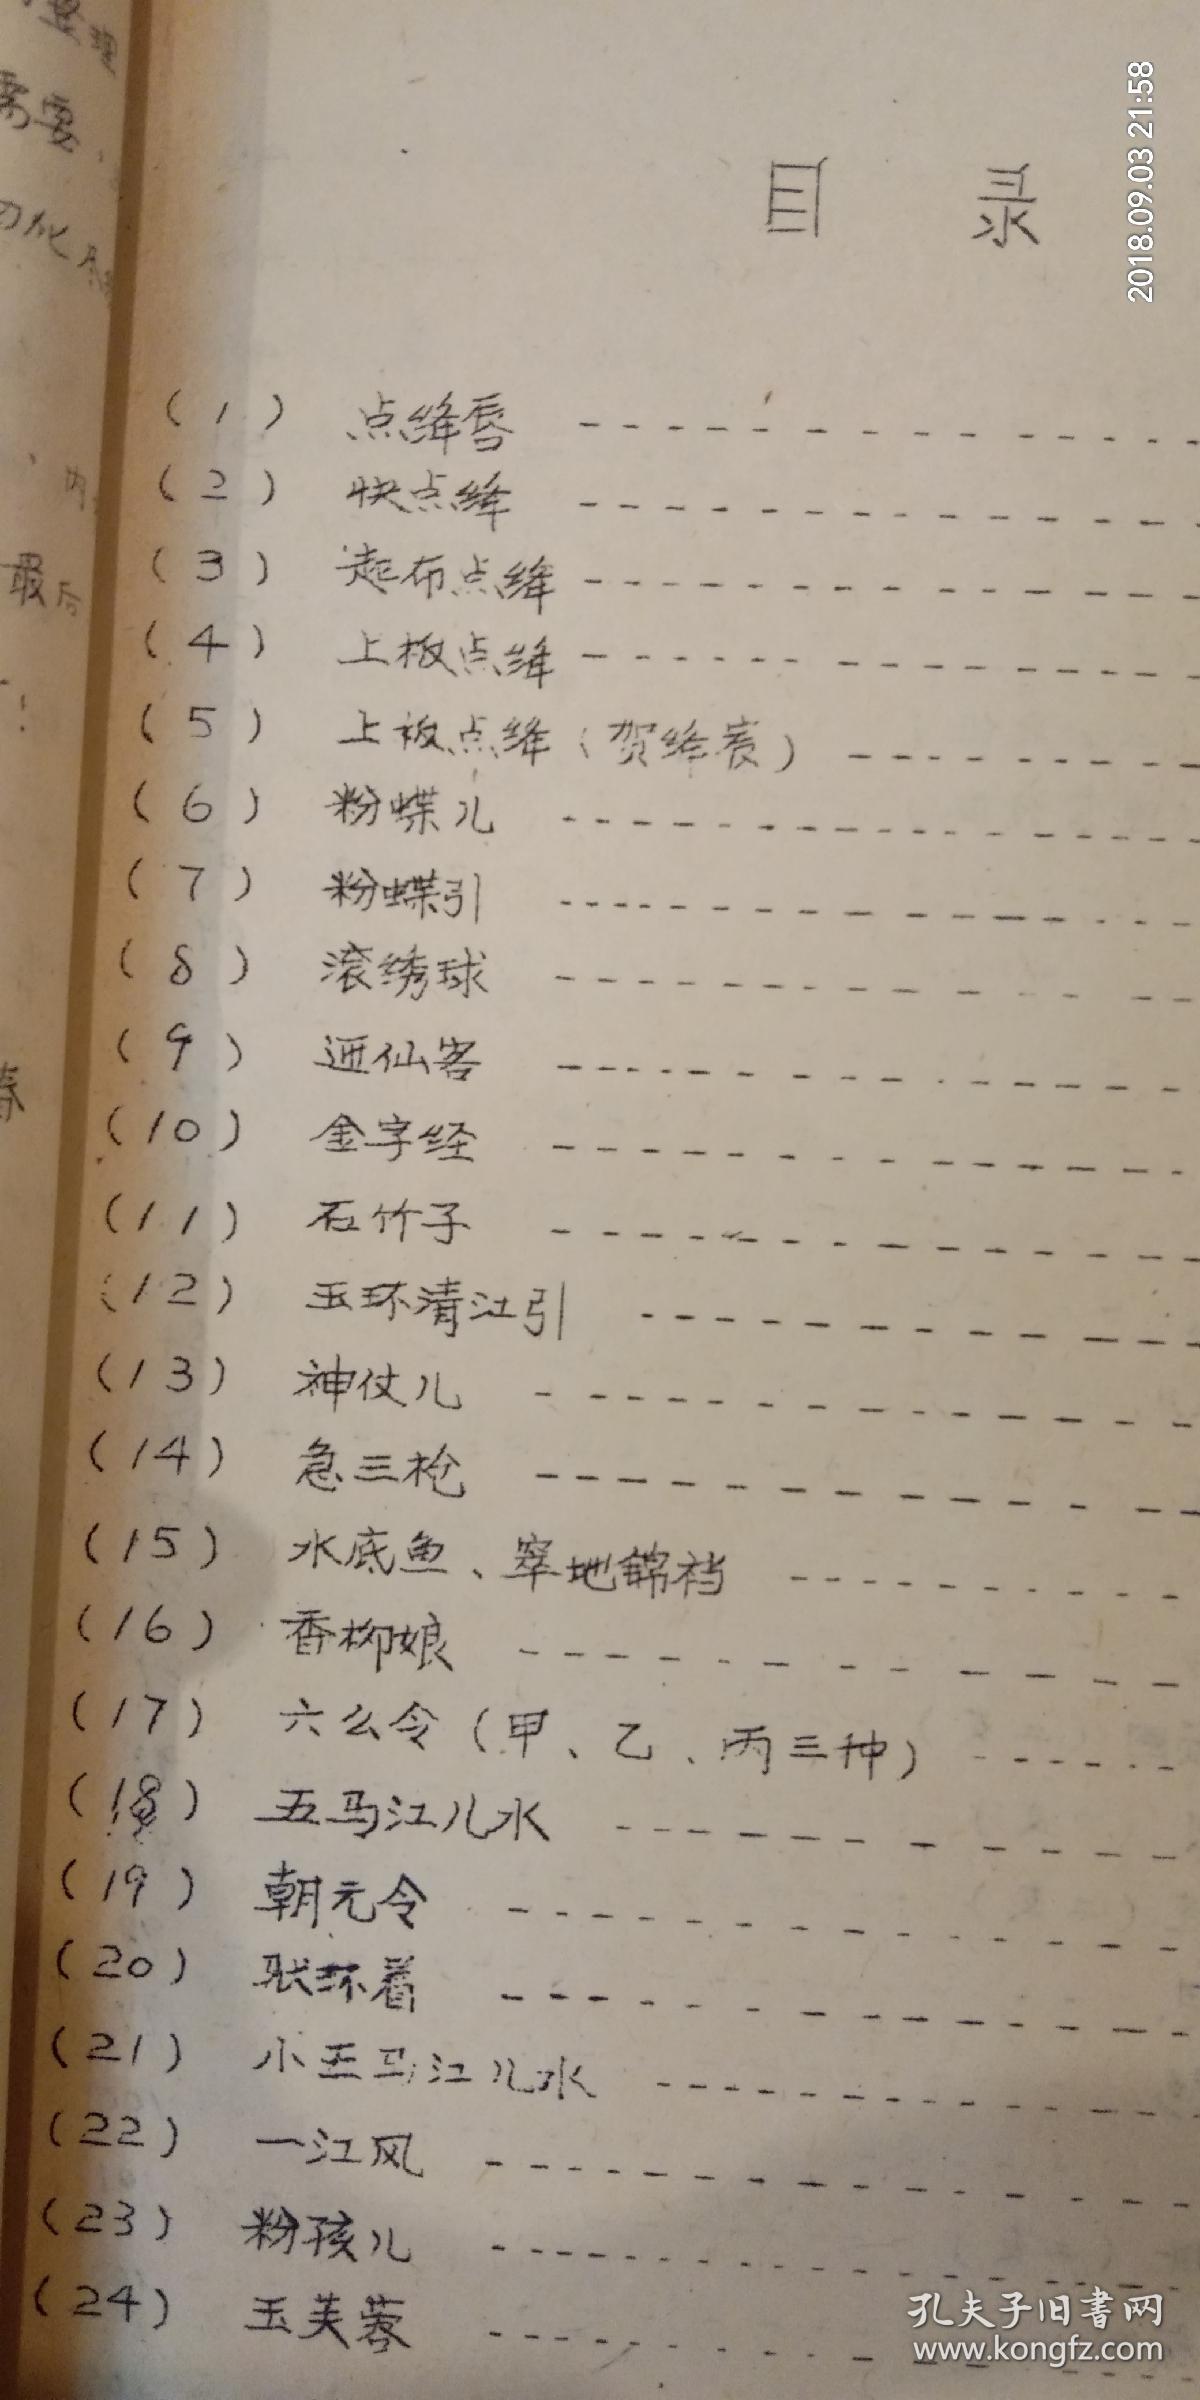 整理
需要、
切化
内
最后
！
春
2018.09.03 21:58
目 录
(1) 点绛唇
(2) 快点绛
(3) 起布点绛
(4) 上板点绛
(5) 上板点绛(贺绛宸)
(6) 粉蝶儿
(7) 粉蝶引
(8) 滚绣球
(9) 迎仙客
(10) 金字经
(11) 石竹子
(12) 玉环清江引
(13) 神仗儿
(14) 急三枪
(15) 水底鱼、窣地锦裆
(16) 香柳娘
(17) 六么令(甲、乙、丙三种)
(18) 五马江儿水
(19) 朝元令
(20) 驮环着
(21) 小五马江儿水
(22) 一江风
(23) 粉孩儿
(24) 玉芙蓉
孔夫子旧書网
www.kongfz.com